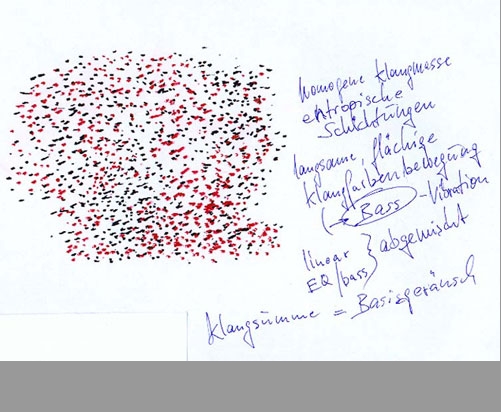 homogene Klangmasse
entropische
Schichtungen
langsame, flächige
Klangfarbenbewegung
(→ Bass - Vibration
linear
EQ/bass } abgemischt
Klangsumme = Basisgeräusch